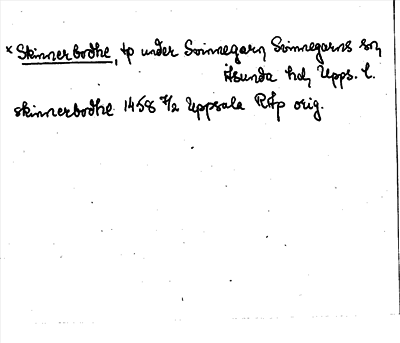 × Skinnerbodhe, tp under Svinnegarn Svinnegarns sn
Åsunda hd, Upps. l.
skinnerbodhe 1458 7/2 Uppsala RAp orig.